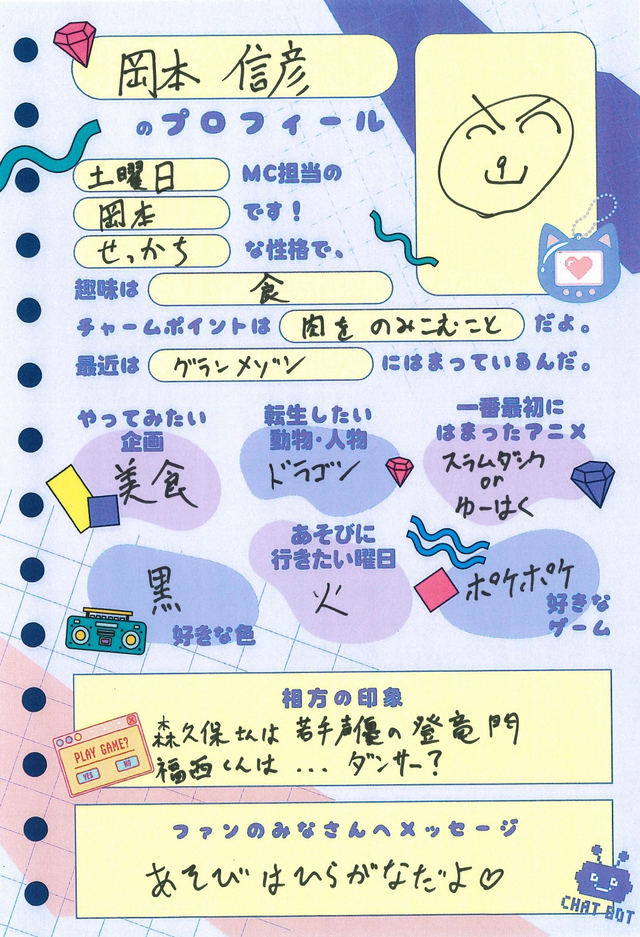 岡本 信彦
のプロフィール
土曜日 MC担当の
岡本 です！
せっかち な性格で、
趣味は 食
チャームポイントは 肉を のみこむこと だよ。
最近は グランメゾン にはまっているんだ。
やってみたい
企画
美食
転生したい
動物・人物
ドラゴン
一番最初に
はまったアニメ
スラムダンク
or
ゆーはく
黒
好きな色
あそびに
行きたい曜日
火
ポケポケ
好きな
ゲーム
PLAY GAME?
YES NO
相方の印象
森久保さんは 若手声優の登竜門
福西くんは ... ダンサー?
ファンのみなさんへメッセージ
あそびはひらがなだよ♡
CHAT BOT